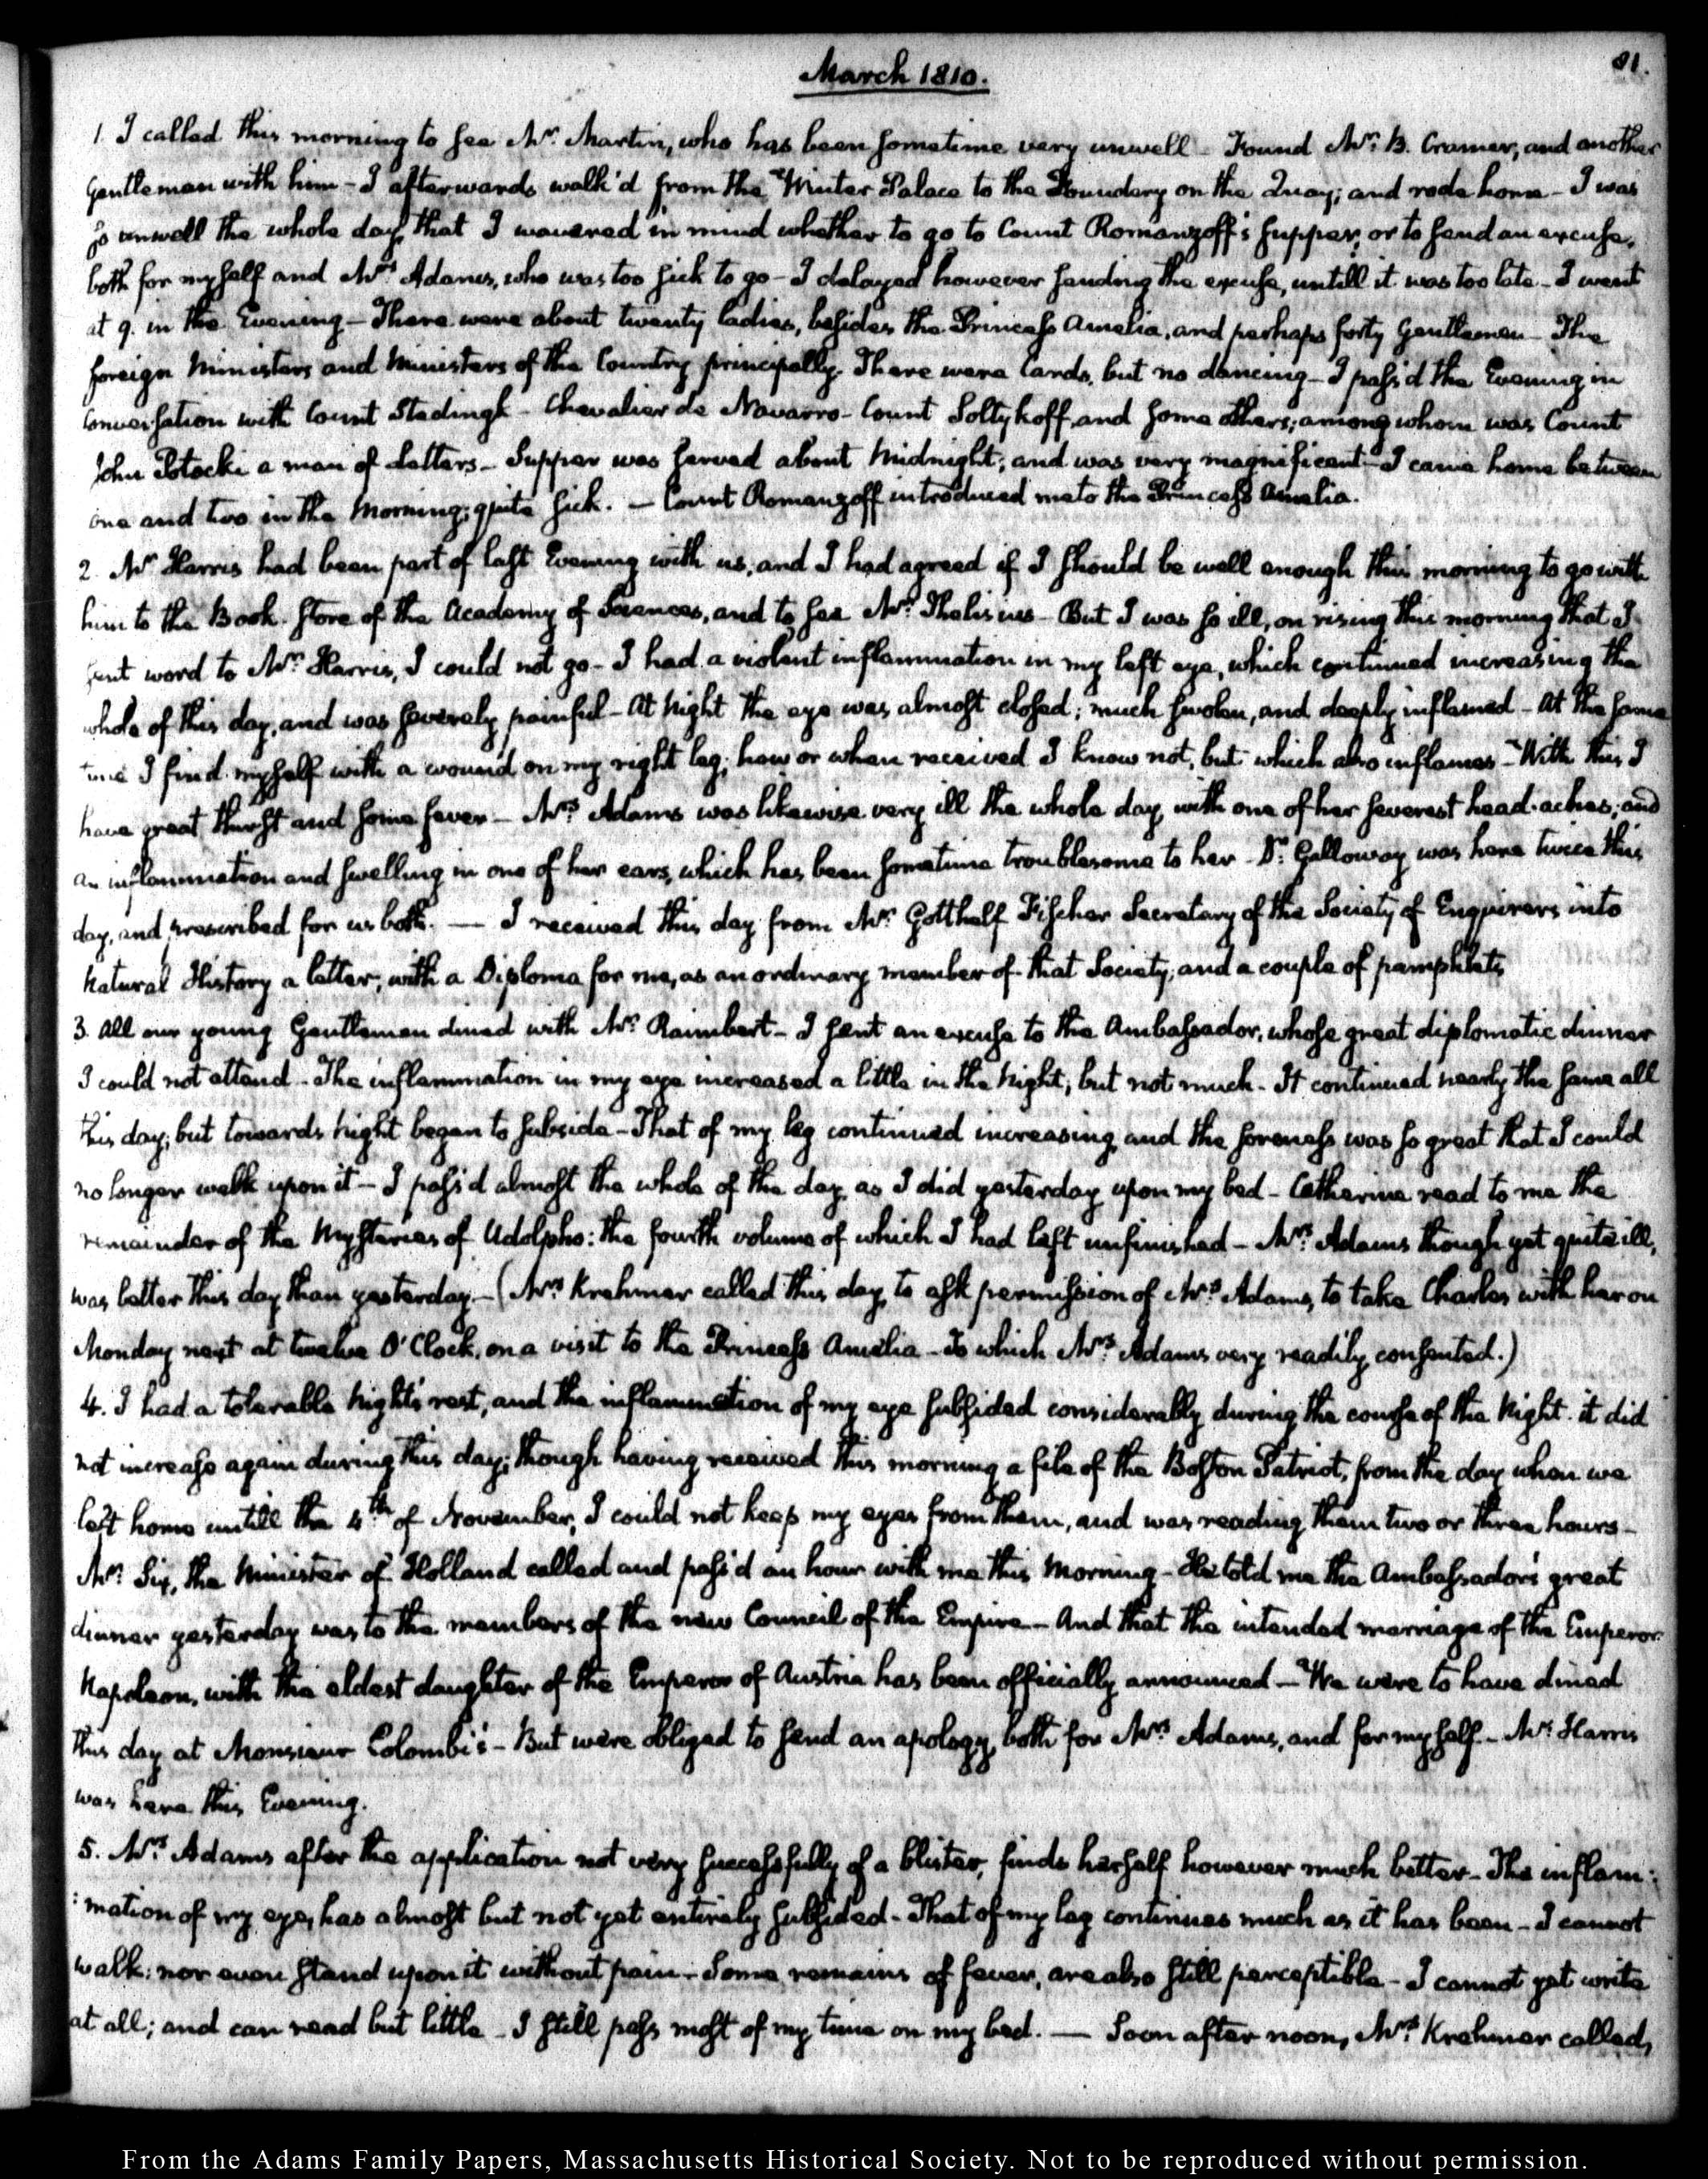 March 1810.
81.
1. I called this morning to see Mr. Martin, who has been sometime very unwell - Found Mr. B. Cramer, and another
Gentleman with him - I afterwards walk'd from the Winter Palace to the Foundery on the Quay; and rode home - I was
so unwell the whole day, that I wavered in mind whether to go to Count Romanzoff's supper, or to send an excuse,
both for myself and Mrs. Adams, who was too sick to go - I delayed however sending the excuse, untill it was too late - I went
at 9. in the Evening - There were about twenty ladies, besides the Princess Amelia, and perhaps forty Gentlemen - The
foreign Ministers and Ministers of the Country principally. There were Cards, but no dancing - I pass'd the Evening in
conversation with Count Stedingk - Chevalier de Navarro - Count Soltykoff, and some others; among whom was Count
John Potocki a man of Letters - Supper was served about Midnight; and was very magnificent - I came home between
one and two in the Morning; quite sick. - Count Romanzoff introduced me to the Princess Amelia.
2. Mr Harris had been part of last Evening with us, and I had agreed if I should be well enough this morning to go with
him to the Book-store of the Academy of Sciences, and to see Mr. Thelisius - But I was so ill, on rising this morning that I
sent word to Mr. Harris, I could not go - I had a violent inflammation in my left eye, which continued increasing the
whole of this day, and was severely painful - At Night the eye was almost closed; much swolen, and deeply inflamed - At the same
time I find myself with a wound on my right leg; how or when received I know not, but which also inflames - With this I
have great thirst and some fever - Mrs. Adams was likewise very ill the whole day, with one of her severest head-aches; and
an inflammation and swelling in one of her ears, which has been sometime troublesome to her - Dr. Galloway was here twice this
day, and prescribed for us both. - I received this day from Mr. Gotthelf Fischer Secretary of the Society of Enquirers into
Natural History a letter, with a Diploma for me, as an ordinary member of that Society; and a couple of pamphlets
3. All our young Gentlemen dined with Mr. Raimbert - I sent an excuse to the Ambassador, whose great diplomatic dinner
I could not attend - The inflammation in my eye increased a little in the Night; but not much - It continued nearly the same all
this day; but towards Night began to subside - That of my leg continued increasing and the soreness was so great that I could
no longer walk upon it - I pass'd almost the whole of the day, as I did yesterday upon my bed - Catherine read to me the
remainder of the Mysteries of Udolpho: the fourth volume of which I had left unfinished - Mrs. Adams though yet quite ill,
was better this day than yesterday - (Mrs Krehmer called this day, to ask permission of Mrs. Adams, to take Charles with her on
Monday next at twelve O'Clock, on a visit to the Princess Amelia - To which Mrs. Adams very readily consented.)
4. I had a tolerable Night's rest, and the inflammation of my eye subsided considerably during the course of the Night. it did
not increase again during this day; though having received this morning a file of the Boston Patriot, from the day when we
left home untill the 4th. of November, I could not keep my eyes from them, and was reading them two or three hours -
Mr. Six, the Minister of Holland called and pass'd an hour with me this Morning - He told me the Ambassador's great
dinner yesterday was to the members of the new Council of the Empire - And that the intended marriage of the Emperor
Napoleon, with the eldest daughter of the Emperor of Austria has been officially announced - We were to have dined
this day at Monsieur Colombi's - But were obliged to send an apology, both for Mrs. Adams, and for myself - Mr. Harris
was here this Evening.
5. Mrs. Adams after the application not very successfully of a blister, finds herself however much better - The inflam:
:mation of my eye, has almost but not yet entirely subsided - That of my leg continues much as it has been - I cannot
walk: nor even stand upon it without pain - Some remains of fever, are also still perceptible - I cannot yet write
at all; and can read but little - I still pass most of my time on my bed. - Soon after noon, Mrs. Krehmer called,
From the Adams Family Papers, Massachusetts Historical Society. Not to be reproduced without permission.